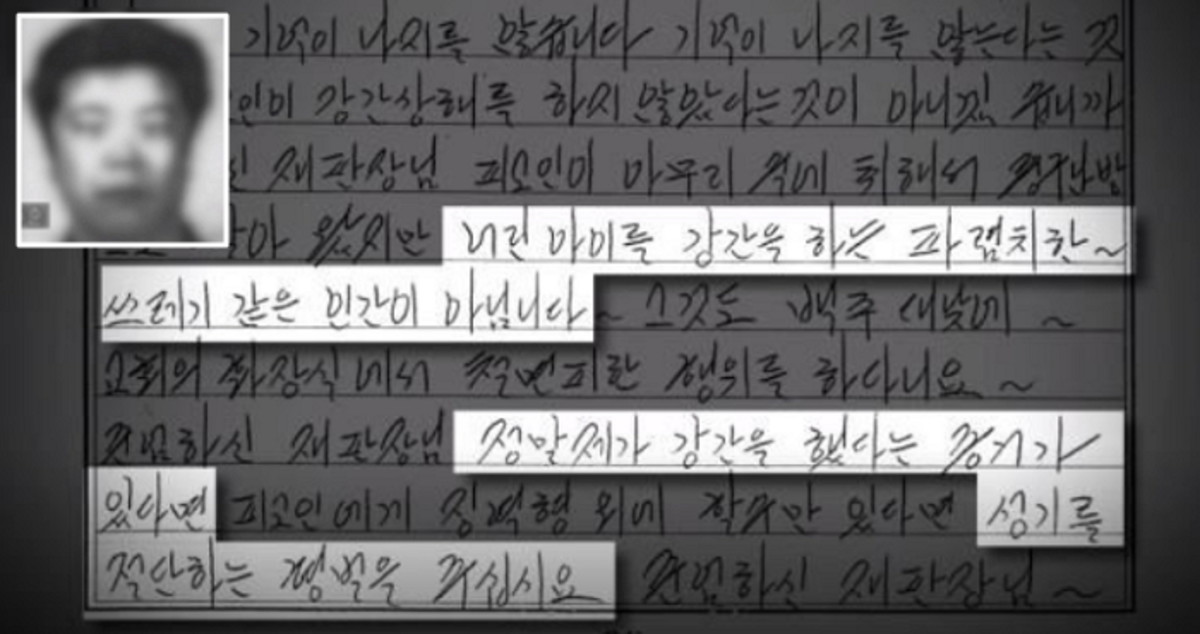 기억이 나지를 않습니다 기억이 나지를 않는다는 것
인이 강간상해를 하지 않았다는것이 아니잖 습니까
재판장님 피고인이 아무리 술에 취해서
왔지만 어린 아이를 강간을 하는 파렴치한~
쓰레기 같은 인간이 아닙니다~ 그것도 백주 대낮에 ~
교회의 화장실에서 철면피한 행위를 하다니요 ~
존엄하신 재판장님 정말제가 강간을 했다는 증거가
있다면 피고인에게 징역형 외에 할수만 있다면 성기를
절단하는 형벌을 주십시요 존엄하신 재판장님 ~